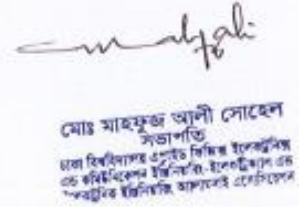 মোঃ মাহফুজ আলী সোহেল
সভাপতি
ঢাকা বিশ্ববিদ্যালয় এপ্লাইড ফিজিক্স ইলেকট্রনিক্স
এন্ড কমিউনিকেশন ইঞ্জিনিয়ারিং, ইলেকট্রিক্যাল এন্ড
ইলেকট্রনিক ইঞ্জিনিয়ারিং অ্যালামনাই এসোসিয়েশন